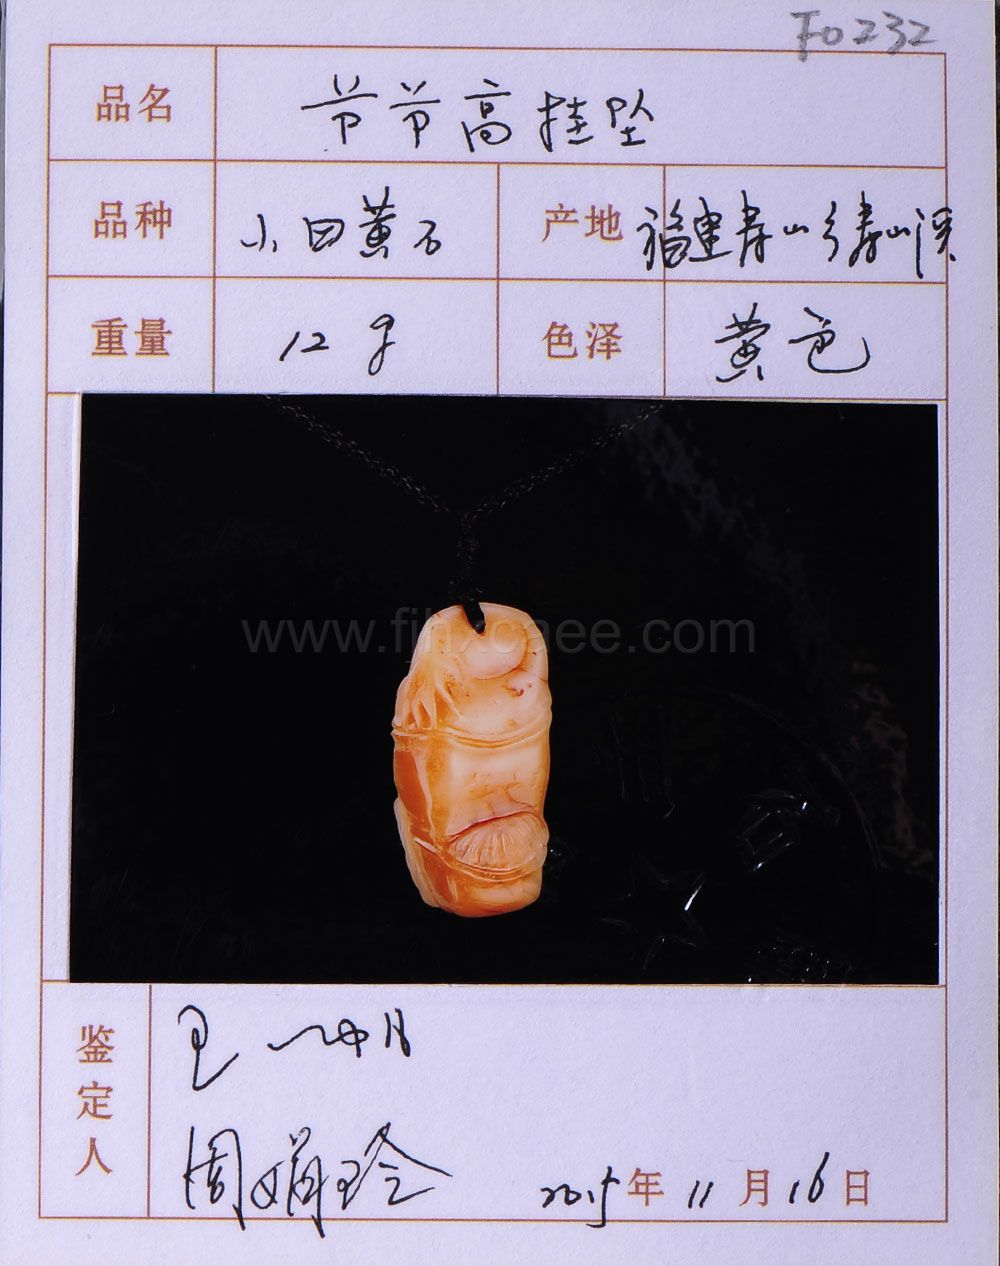 F0232
品名 节节高挂坠
品种 小田黄石 产地 福建寿山乡寿山溪
重量 12g 色泽 黄色
www.fjhxcaee.com
鉴定人
周娟玲
2015年11月16日